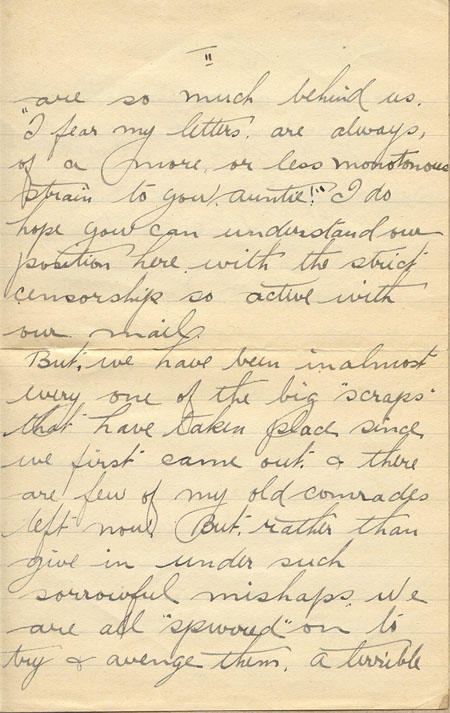 "II"
are so much behind us.
"I fear my letters, are always,
of a more, or less monotonous
strain to you, auntie!" I do
hope you can understand our
position here, with the strict
censorship so active with
our mail.
But, we have been in almost
every one of the big "scraps"
that have taken place since
we first came out, & there
are few of my old comrades
left now. But, rather than
give in under such
sorrowful mishaps, we
are all "spurred" on to
try & avenge them. A terrible